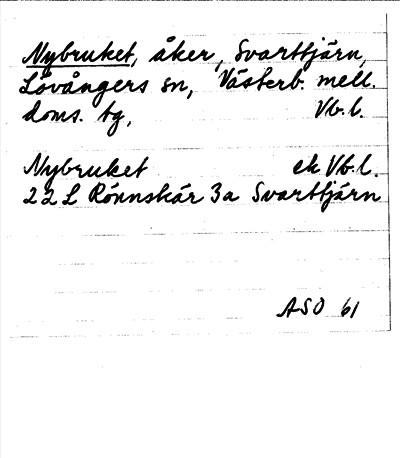 Nybruket, åker, Svarttjärn,
Lövångers sn, Västerb. mell.
doms. tg, Vb.l.
Nybruket ek Vb.l.
22 L Rönnskär 3a Svarttjärn
ASO 61